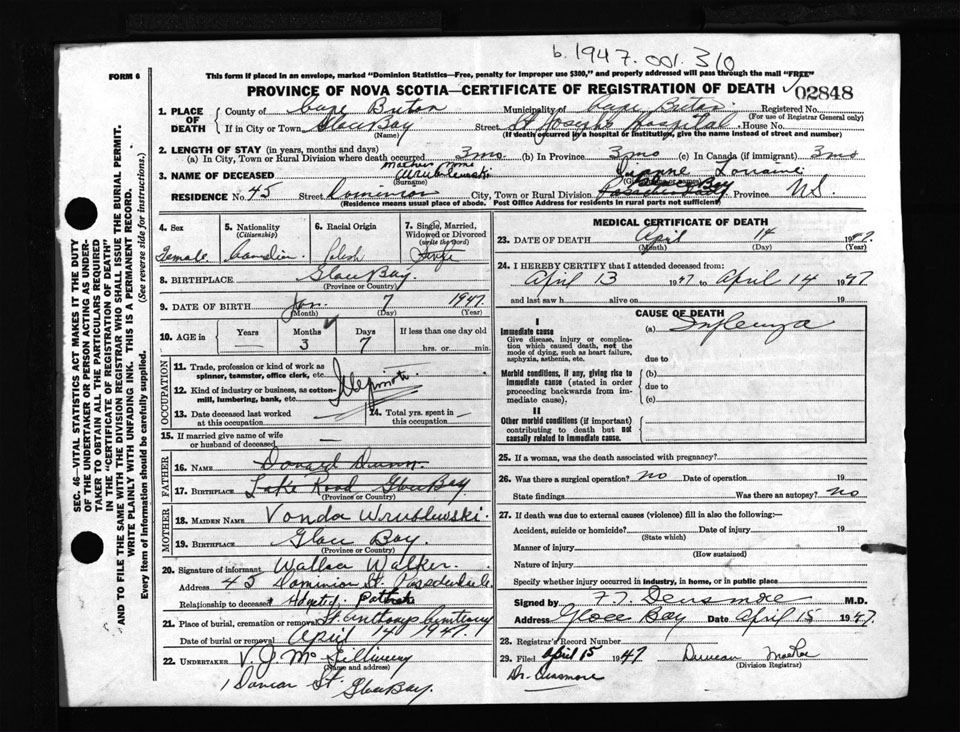 b. 1947. 001. 310
FORM 6
This form if placed in an envelope, marked "Dominion Statistics—Free, penalty for improper use $300," and properly addressed will pass through the mail "FREE"
PROVINCE OF NOVA SCOTIA—CERTIFICATE OF REGISTRATION OF DEATH 02848
1. PLACE OF DEATH
County of Cape Breton Municipality of Cape Breton Registered No.
(For use of Registrar General only)
If in City or Town Glace Bay Street St Josephs Hospital House No.
(Name) (If death occurred by a hospital or institution, give the name instead of street and number)
2. LENGTH OF STAY (in years, months and days)
(a) In City, Town or Rural Division where death occurred 3 mo. (b) In Province 3 mo (c) In Canada (if immigrant) 3 mo
Mother
3. NAME OF DECEASED Wrublewski Lorraine
(Surname)
RESIDENCE No. 45 Street Dominion City, Town or Rural Division Province N.S.
(Residence means usual place of abode. Post Office Address for residents in rural parts not sufficient)
4. Sex
Female
5. Nationality
(Citizenship)
Canadian
6. Racial Origin
Polish
7. Single, Married, Widowed or Divorced
(write the word)
Single
8. BIRTHPLACE Glace Bay.
(Province or Country)
9. DATE OF BIRTH Jan. 7 1947
(Month) (Day) (Year)
10. AGE in Years Months Days If less than one day old
— 3 7 hrs. or min.
OCCUPATION
11. Trade, profession or kind of work as spinner, teamster, office clerk, etc.
12. Kind of industry or business, as cotton-mill, lumbering, bank, etc.
13. Date deceased last worked at this occupation
14. Total yrs. spent in this occupation —
15. If married give name of wife or husband of deceased —
FATHER
16. NAME Donald Dunn.
17. BIRTHPLACE Lake Road Glace Bay.
(Province or Country)
MOTHER
18. MAIDEN NAME Vonda Wrublewski.
19. BIRTHPLACE Glace Bay.
(Province or Country)
20. Signature of informant Wallace Walker.
Address 45 Dominion St.
Relationship to deceased
21. Place of burial, cremation or removal St. Anthonys
Date of burial or removal April 14 1947.
22. UNDERTAKER V. J. Mc
(Name and address)
St. Glace Bay.
MEDICAL CERTIFICATE OF DEATH
23. DATE OF DEATH April 14 1947.
(Month) (Day) (Year)
24. I HEREBY CERTIFY that I attended deceased from:
April 13 1947 to April 14 1947
and last saw h alive on 19
CAUSE OF DEATH
I
Immediate cause (a) Influenza
Give disease, injury or complication which caused death, not the mode of dying, such as heart failure, asphyxia, asthenia, etc.
due to
Morbid conditions, if any, giving rise to immediate cause (stated in order proceeding backwards from immediate cause).
(b)
due to
(c)
II
Other morbid conditions (if important) contributing to death but not causally related to immediate cause.
25. If a woman, was the death associated with pregnancy?
26. Was there a surgical operation? no Date of operation 19
State findings Was there an autopsy? no
27. If death was due to external causes (violence) fill in also the following:—
Accident, suicide or homicide? Date of injury 19
(State which)
Manner of injury
(How sustained)
Nature of injury
Specify whether injury occurred in industry, in home, or in public place
Signed by F. T. Densmore M.D.
Address Glace Bay Date April 15 1947.
28. Registrar's Record Number
29. Filed April 15 1947 Duncan MacRae
(Division Registrar)
Dr. Densmore
SEC. 46—VITAL STATISTICS ACT MAKES IT THE DUTY
OF THE UNDERTAKER OR PERSON ACTING AS UNDERTAKER TO OBTAIN ALL THE PARTICULARS REQUIRED
IN THE "CERTIFICATE OF REGISTRATION OF DEATH"
AND TO FILE THE SAME WITH THE DIVISION REGISTRAR WHO SHALL ISSUE THE BURIAL PERMIT.
WRITE PLAINLY WITH UNFADING INK. THIS IS A PERMANENT RECORD.
Every item of information should be carefully supplied. (See reverse side for instructions.)